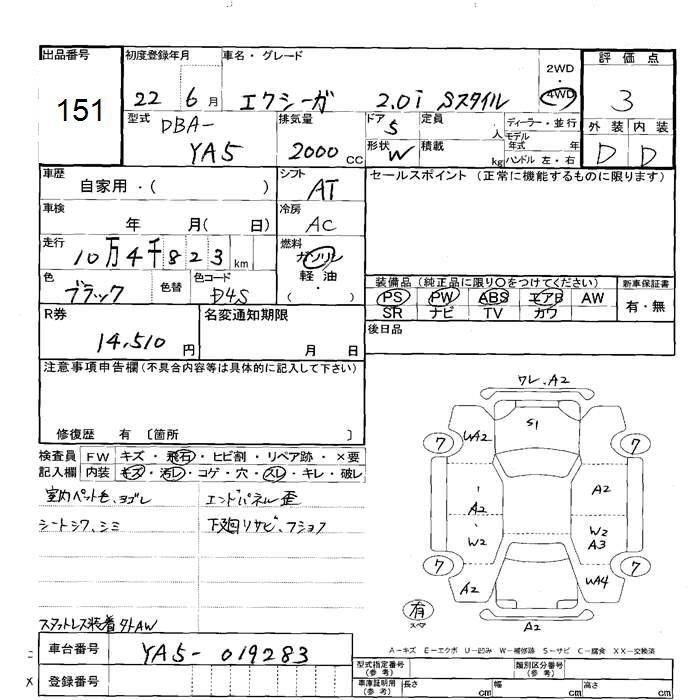 出品番号 初度登録年月 車名・グレード 評価点
151 22 6月 エクシーガ 2.0i Sスタイル 2WD・4WD 3
型式 DBA- YA5 排気量 2000CC ドア 5 定員 人 ディーラー・並行 外装 内装
形状 W 積載 kg モデル年式 年 ハンドル 左・右 D D
車歴 自家用・( ) シフト AT セールスポイント (正常に機能するものに限ります)
車検 年 月( 日) 冷房 AC
走行 10万4千823km 燃料 ガソリン 軽油・( )
色 ブラック 色替 色コード D4S 装備品 (純正品に限り○をつけてください) 新車保証書
PS PW ABS エアB AW 有・無
SR ナビ TV カワ
R券 14,510円 名変通知期限 月 日 後日品
注意事項申告欄 (不具合内容等は具体的に記入して下さい)
修復歴 有 〔箇所 〕
検査員記入欄 FW キズ・飛石・ヒビ割・リペア跡・×要
内装 キズ・汚レ・コゲ・穴・スレ・キレ・破レ
室内ペット毛、ヨゴレ エンドパネル歪
シートシワ、シミ 下回リサビ、フショク
スタットレス装着 タトAW
車台番号 YA5-019283
登録番号
ワレ、A2
S1
7 WA2 7
A2 A2
W2 W2 A3
7 A2 WA4 7
有 スペア A2
A-キズ E-エクボ U-凹み W-補修跡 S-サビ C-腐食 XX-交換済
型式指定番号(参考) 類別区分番号(参考)
車庫証明用(参考) 長さ cm 幅 cm 高さ cm